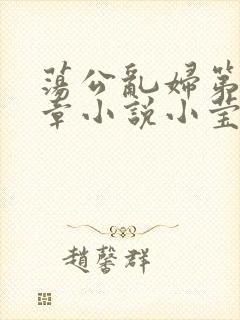 蕩公亂婦第
章小說小莹
趙馨群